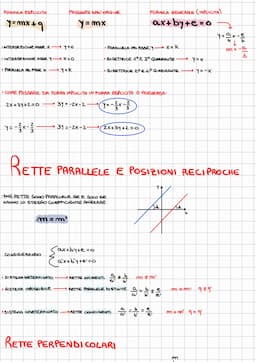 FORMULA ESPLICITA PASSANTE NELL'ORIGINE FORMULA GENERALE (IMPLICITA)
y=mx+q y=mx ax+by+c=0
• INTERSEZIONE ASSE X → y=0
• INTERSEZIONE ASSE Y → x=0
• PARALLELA AD ASSE X → y=k
• PARALLELA AD ASSE Y → x=k
• BISETTRICE 1° E 3° QUADRANTE → y=x
• BISETTRICE 2° E 4° QUADRANTE → y=-x
• COME PASSARE DA FORMA IMPLICITA IN FORMA ESPLICITA O VICEVERSA:
2x+3y+2=0 → 3y=-2x-2 → y=-2/3x-2/3
y=-2/3x-2/3 → 3y=-2x-2 → 2x+3y+2=0
RETTE PARALLELE E POSIZIONI RECIPROCHE
DUE RETTE SONO PARALLELE SE E SOLO SE
HANNO LO STESSO COEFFICIENTE ANGOLARE
m=m'
CONSIDERANDO
ax+by+c=0
a'x+b'y+c'=0
• SISTEMA DETERMINATO → RETTE INCIDENTI a/a' ≠ b/b' m≠m'
• SISTEMA IMPOSSIBILE → RETTE PARALLELE DISTINTE a/a' = b/b' ≠ c/c' m=m' q≠q'
• SISTEMA INDETERMINATO → RETTE COINCIDENTI a/a' = b/b' = c/c' m=m' q=q'
RETTE PERPENDICOLARI